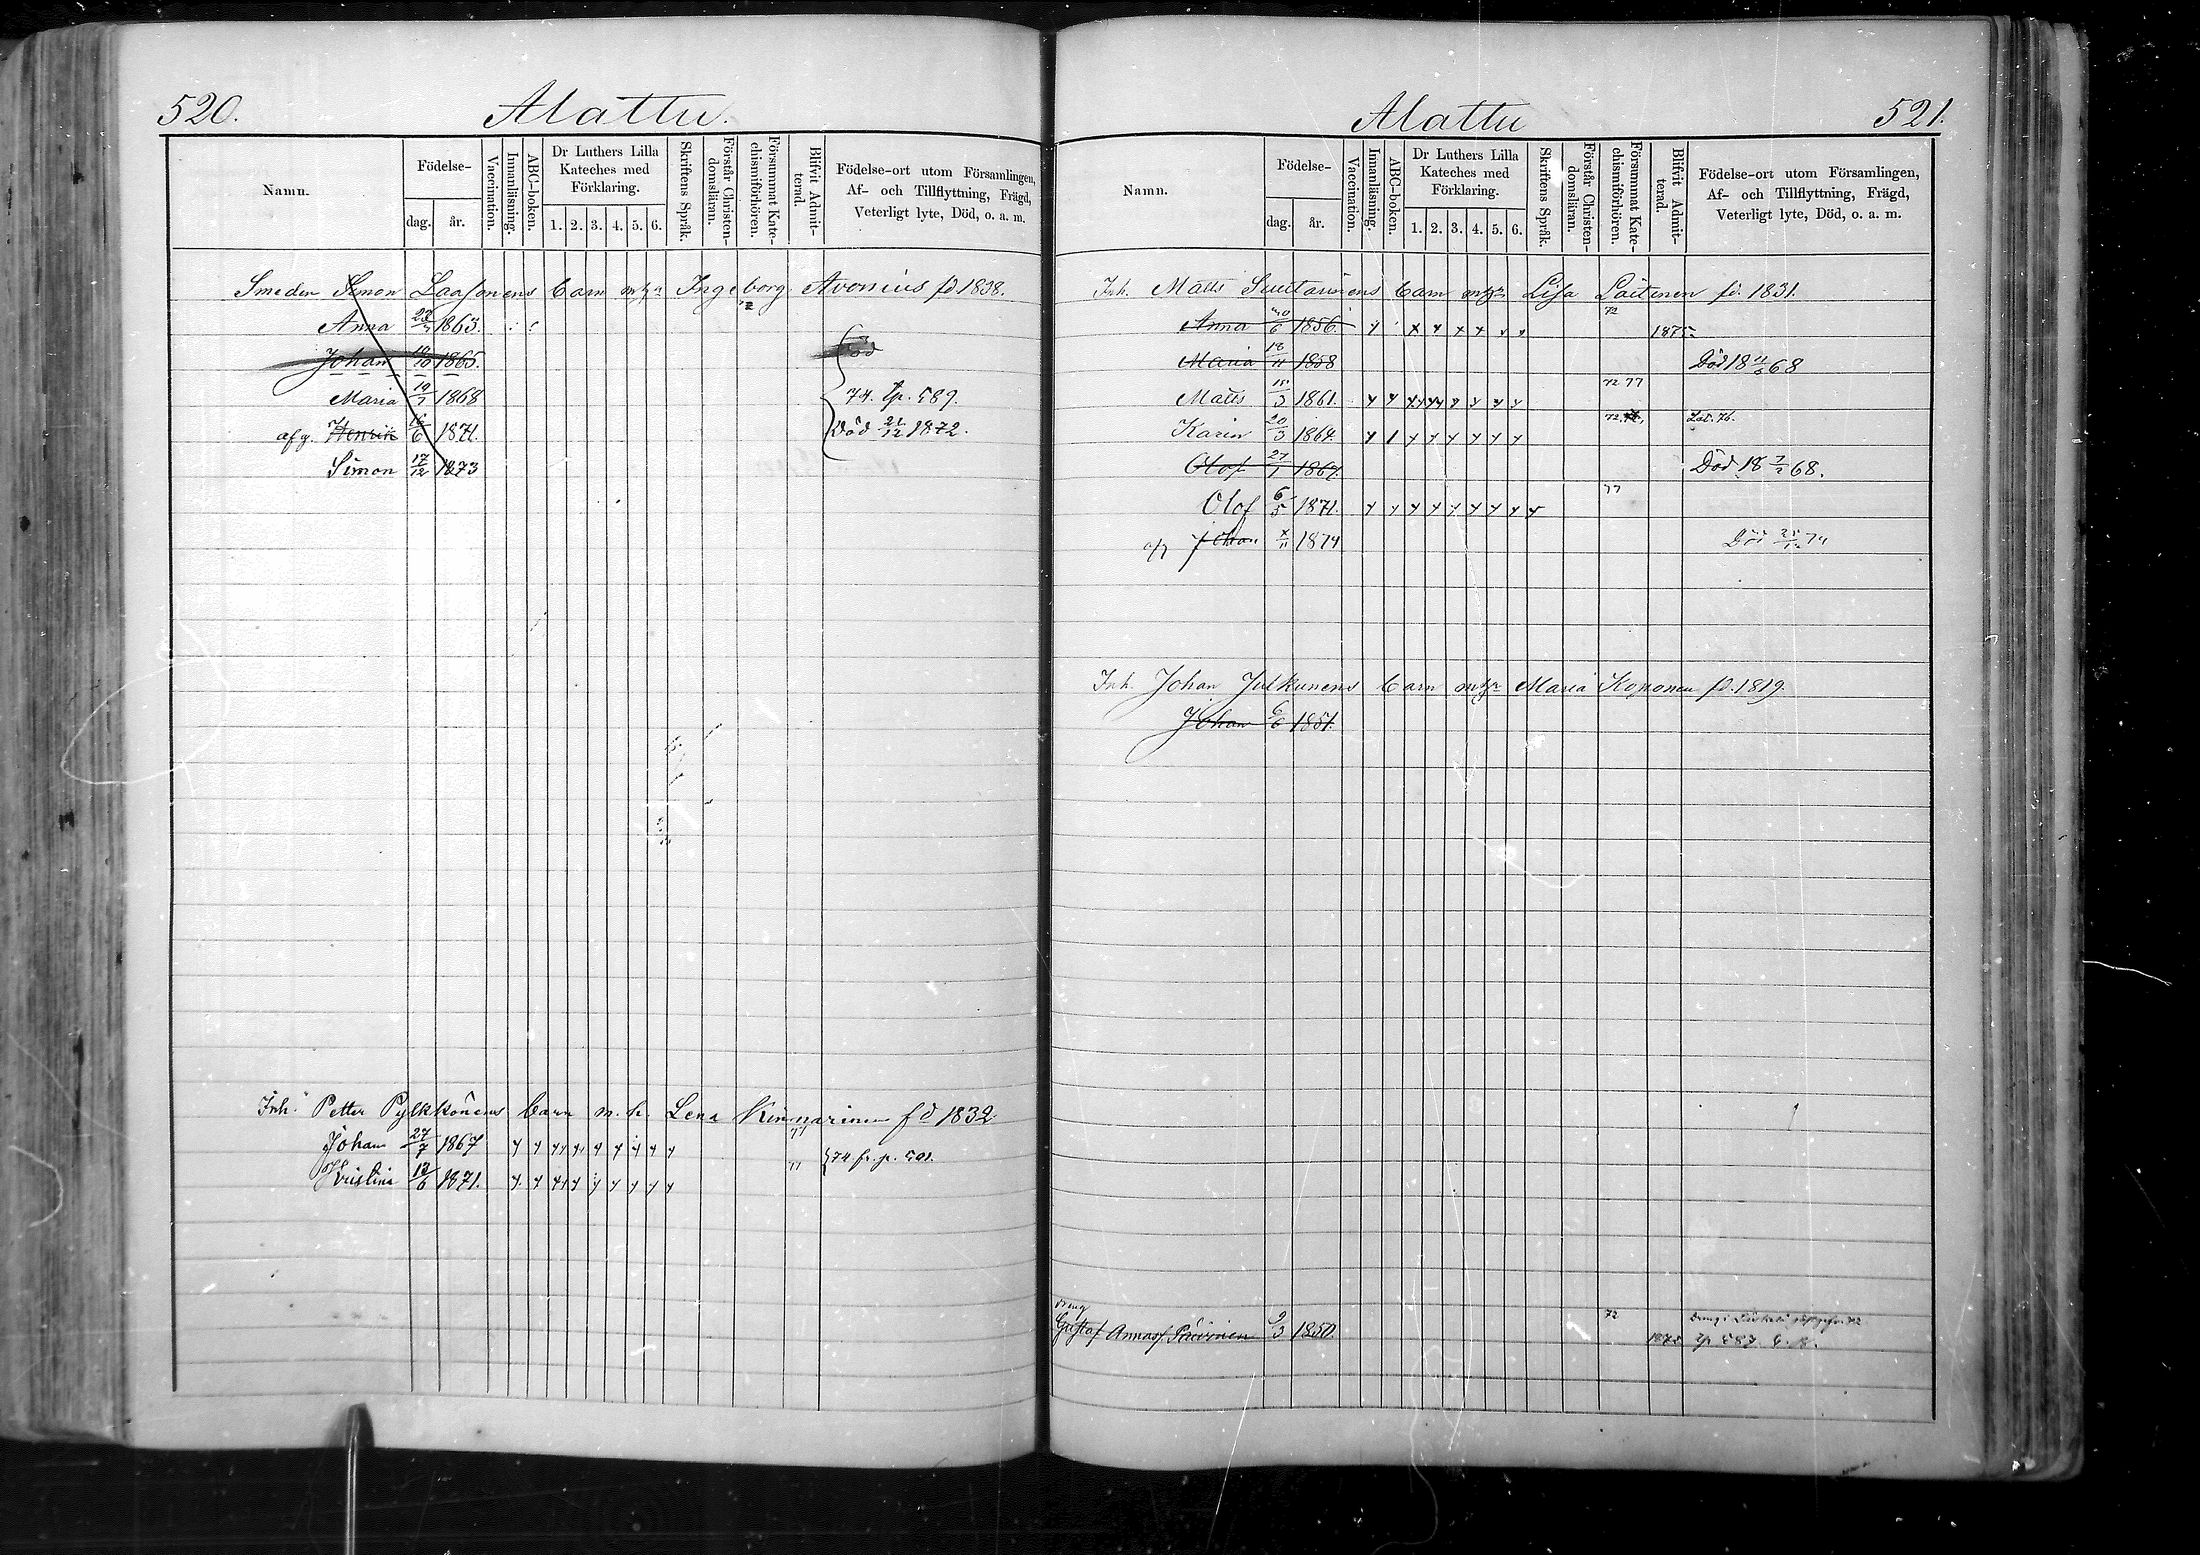 520. Alattu.
Namn. Födelse- dag. år. Vaccination. Innanläsning. ABC-boken. Dr Luthers Lilla Kateches med Förklaring. 1. 2. 3. 4. 5. 6. Skriftens Språk. Förstår Christen-domsläran. Försummat Kate-chismiförhören. Blifvit Admit-terad. Födelse-ort utom Församlingen, Af- och Tillflyttning, Frägd, Veterligt lyte, Död, o. a. m.
Smeden Simon Laasonens barn m h:a Ingeborg Avonius fd 1838.
Anna 1863.
Johan 18/10 1865. Död
Maria 19/7 1868 74. p. 589.
afg. Henrik 16/6 1871. Död 21/12 1872.
Simon 17/12 1873
Inh. Petter Pylkkönens barn m. h. Lena Kinnarinen fd 1832.
77
Johan 27/7 1867 74 fr. p. 501.
Kristina 12/6 1871. 77
Alattu 521.
Namn. Födelse- dag. år. Vaccination. Innanläsning. ABC-boken. Dr Luthers Lilla Kateches med Förklaring. 1. 2. 3. 4. 5. 6. Skriftens Språk. Förstår Christen-domsläran. Försummat Kate-chismiförhören. Blifvit Admit-terad. Födelse-ort utom Församlingen, Af- och Tillflyttning, Frägd, Veterligt lyte, Död, o. a. m.
Inh. Matts Suutarinens barn m h:a Lisa Laitinen fd. 1831.
Anna 1856. 72 1875.
Maria 18/11 1858 Död 18 11/5 68
Matts 15/3 1861. 72 77
Karin 20/3 1864. 72.
Olof 27/1 1867. Död 18 7/2 68.
Olof 6/5 1871. 77
afg Johan 1874 Död 25/12 74
Inh. Johan Julkunens barn m h:a Maria Kononen fd. 1819.
Johan 6/6 1851.
Dreng
Gustaf Annas. Päivinen 9/3 1850. 72
587.